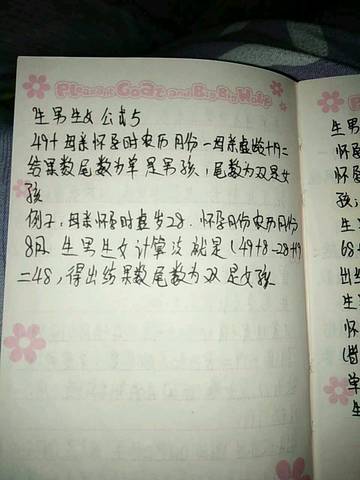 Pleasant Goat and Big Big Wolf
生男生女公式5
49+母亲怀孕时农历月份一母亲虚龄+19=
结果数尾数为单是男孩,尾数为双是女
孩
例子,母亲怀孕时虚岁28.怀孕月份农历月份
8月.生男生女计算法就是(49+8-28+19
=48,得出结果数尾数为双是女孩
生男
怀孕
怀孕
孩;
生
68+
出结
生
怀
(若
单
生